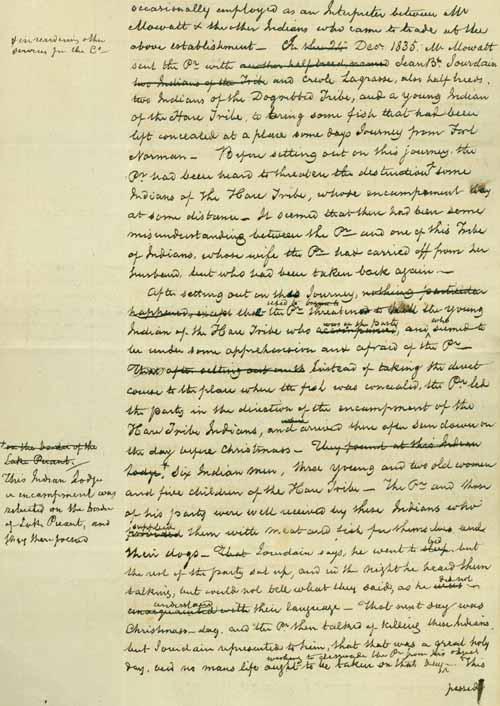 occasionally employed as an Interpreter between Mr
Mowatt & the other Indians who came to trade at the
& in rendering other
services for the Co.
above establishment – On the 24 Decr. 1835, Mr Mowatt
sent the Pr. with another half breed, named Jean Bte. Jourdain
two Indians of the Tribe and Creole Lagrasse, also half breeds,
two Indians of the Dogribbed Tribe, and a young Indian
of the Hare Tribe, to bring some fish that had been
left concealed at a place some days Journey from Fort
Norman – Before setting out on this journey, the
Pr. had been heard to threaten the destruction of some
Indians of the Hare Tribe, whose encampment lay
at some distance – It seemed that there had been some
misunderstanding between the Pr. and one of this Tribe
of Indians, whose wife the Pr. had carried off from her
husband, but who had been taken back again –
After setting out on this Journey, nothing particular
happened, except that the Pr. used to threaten to kill the young
Indian of the Hare Tribe who accompanied, was of the party and who seemed to
be under some apprehension and afraid of the Pr. –
That after setting out Instead of taking the direct
course to the place where the fish was concealed, the Pr. led
the party in the direction of the encampment of the
Hare Tribe Indians, and arrived there after sun down on
the day before Christmass – They found at this Indian
on the border of the
Lake Puant.
This Indian Lodge
or encampment was
situated on the border
of Lake Puant, and
they there found
Lodge, Six Indian men, three young and two old women
and five children of the Hare Tribe – The Pr. and those
of his party were well received by these Indians who
provided supplied them with meat and fish for themselves, and
their dogs – That Jourdain says, he went to sleep bed but
the rest of the party sat up, and in the night he heard them
talking, but could not tell what they said, as he was did not
unacquainted with understand their language – That next day was
Christmass day, and the Pr. then talked of killing these Indians,
but Jourdain represented to him, that that was a great holy
day, and no mans life ought to be taken on that day – wishing to dissuade the Pr. from his object This
passed